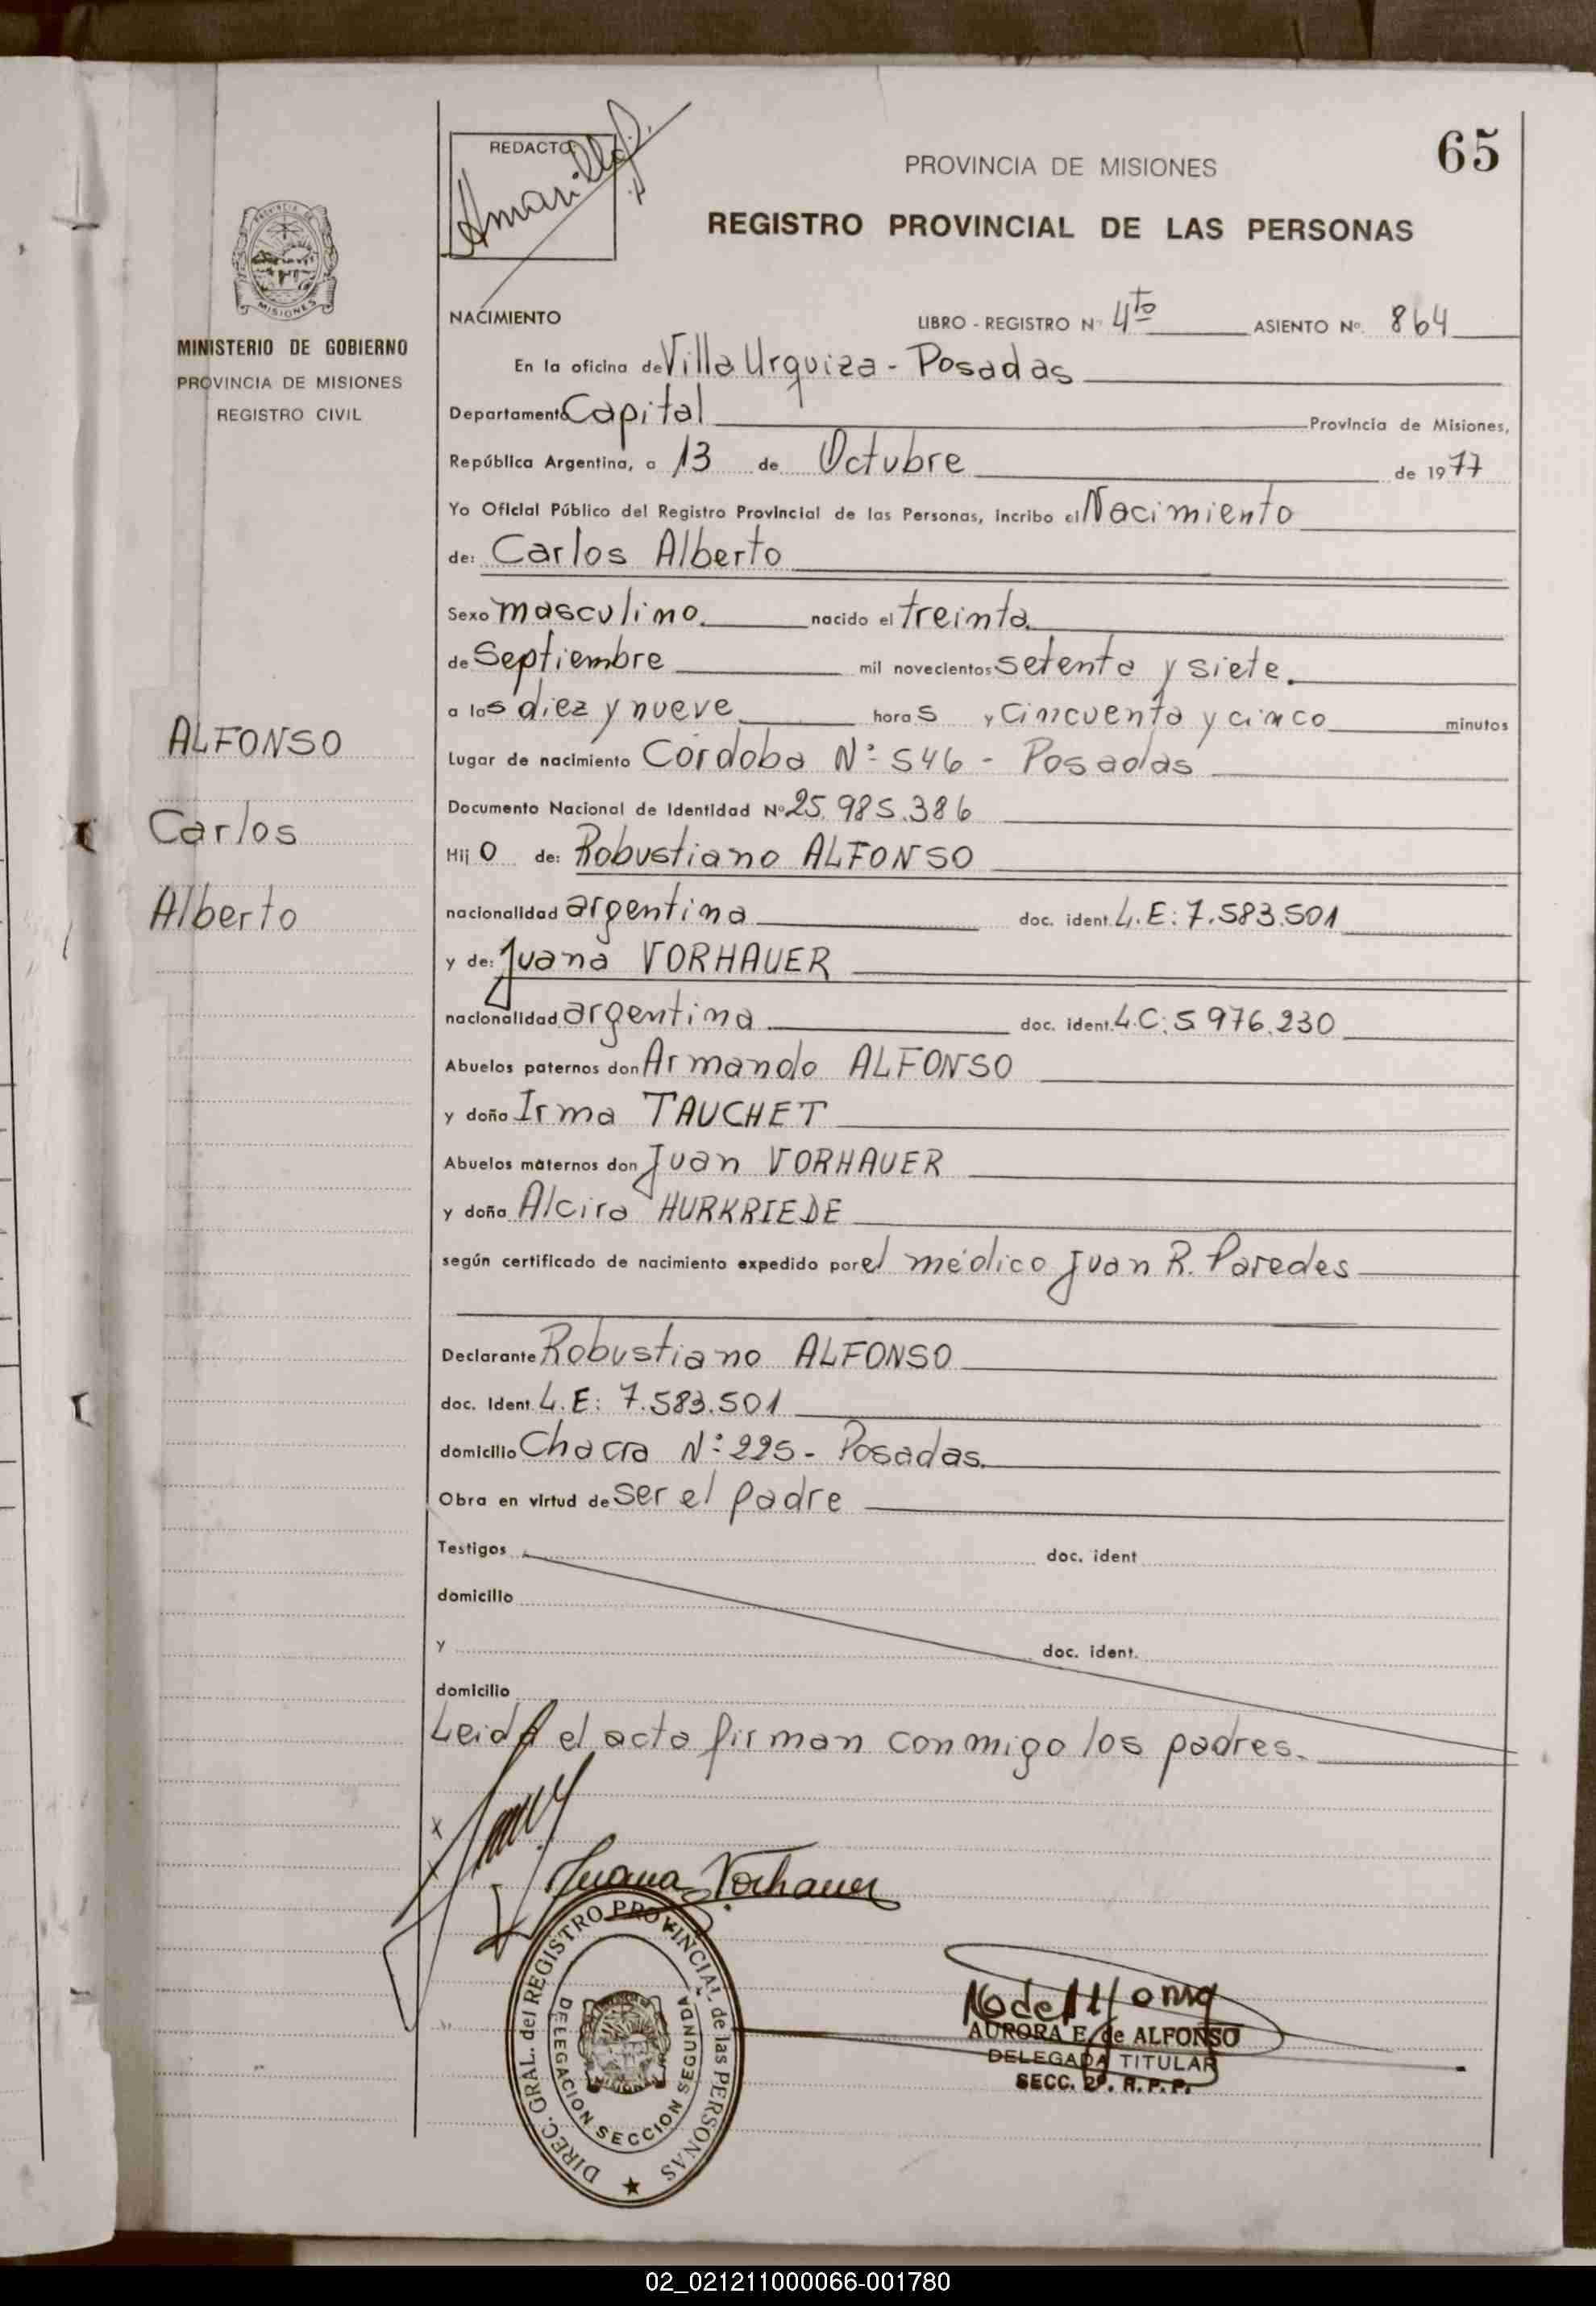 65
REDACTO:
Amarilla
PROVINCIA DE MISIONES
REGISTRO PROVINCIAL DE LAS PERSONAS
PROVINCIA DE
MISIONES
MINISTERIO DE GOBIERNO
PROVINCIA DE MISIONES
REGISTRO CIVIL
NACIMIENTO
LIBRO - REGISTRO Nº 4to ASIENTO Nº. 864
En la oficina de Villa Urquiza - Posadas
Departamento Capital Provincia de Misiones,
República Argentina, a 13 de Octubre de 1977
Yo Oficial Público del Registro Provincial de las Personas, incribo el Nacimiento
de: Carlos Alberto
Sexo masculino. nacido el treinta
de Septiembre mil novecientos setenta y siete.
a las diez y nueve horas y cincuenta y cinco minutos
Lugar de nacimiento Córdoba Nº 546 - Posadas
Documento Nacional de Identidad Nº 25.985.386
Hijo de: Robustiano ALFONSO
nacionalidad argentina doc. ident. L.E: 7.583.501
y de: Juana VORHAUER
nacionalidad argentina doc. ident. L.C: 5.976.230
Abuelos paternos don Armando ALFONSO
y doña Irma TAUCHET
Abuelos maternos don Juan VORHAUER
y doña Alcira HURKRIEDE
según certificado de nacimiento expedido por el médico Juan R. Paredes
Declarante Robustiano ALFONSO
doc. Ident. L.E: 7.583.501
domicilio Chacra Nº 225 - Posadas.
Obra en virtud de ser el padre
Testigos doc. ident
domicilio
y doc. ident.
domicilio
Leida el acta firman conmigo los padres.
ALFONSO
Carlos
Alberto
Juana Vorhauer
DIREC. GRAL. del REGISTRO PROVINCIAL de las PERSONAS
DELEGACION SECCION SEGUNDA
AURORA E. de ALFONSO
DELEGADA TITULAR
SECC. 2ª. R.P.P.
02_021211000066-001780